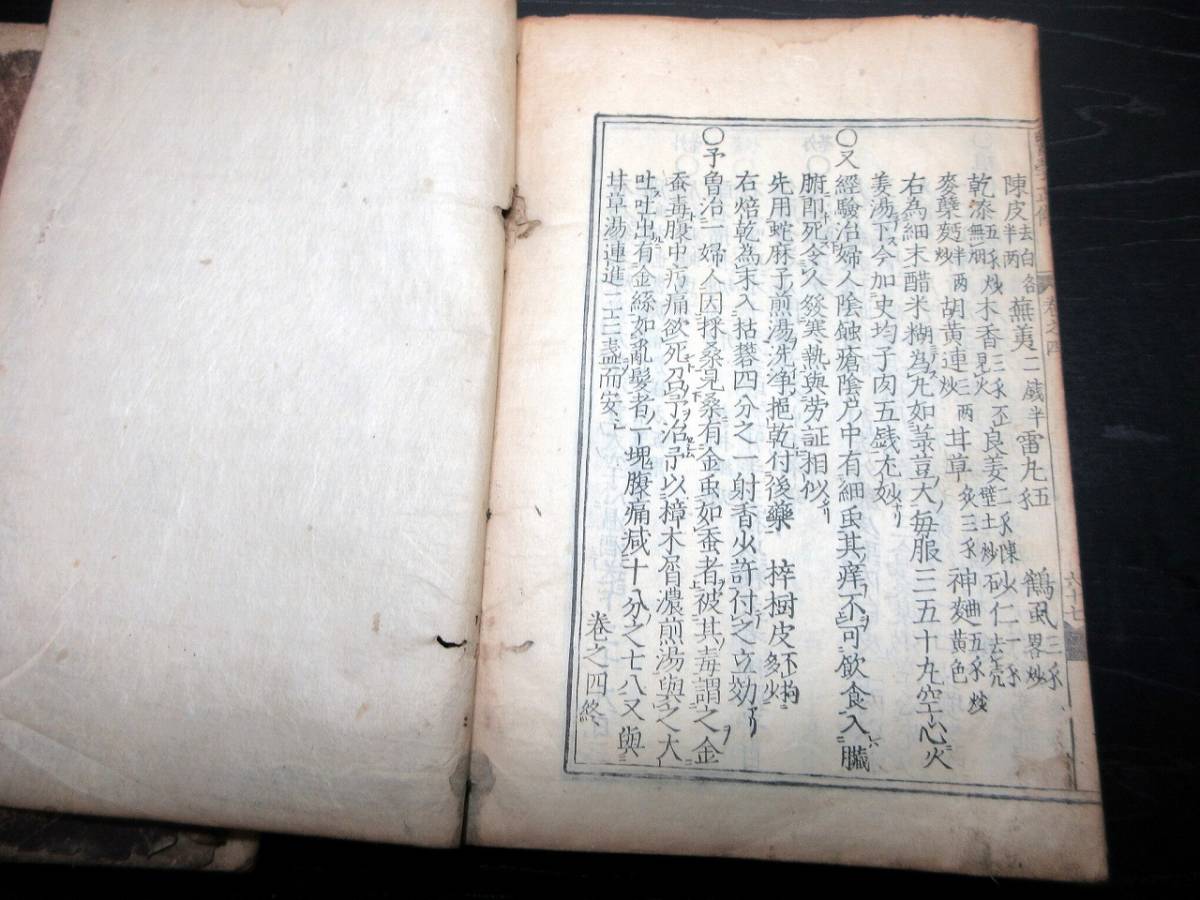 陳皮去白各半两蕪荑二戔半雷丸伍禾鶴虱三禾畧炒
乾漆五禾炒無烟木香三禾不見火良姜二禾陳壁土炒砂仁一禾去壳
麥櫱麪炒半两胡黄連三两炒甘草炙三禾神麯五禾炒黄色
右為細末醋米糊為丸如菉豆大毎服三五十九空心火
姜湯下今加史均子肉五戔尤妙
〇又經驗治婦人陰蝕瘡陰戸中有細虫其痒不可飲食入臓
腑即死令人發寒熱與劳証相似
先用蛇麻子煎湯洗浄挹乾付後藥 梓樹皮
右焙乾為末入枯礬四分之一射香火許付之立効
〇予魯治一婦人因採桑見桑有金虫如蚕者被其毒謂之金
蚕毒腹中㽲痛欲死召予治予以樟木屑濃煎湯與之大
吐吐出有金絲如乱髮者一塊腹痛减十分之七八又與
甘草湯連進二三盞而安
卷之四終
卷之四
六十七